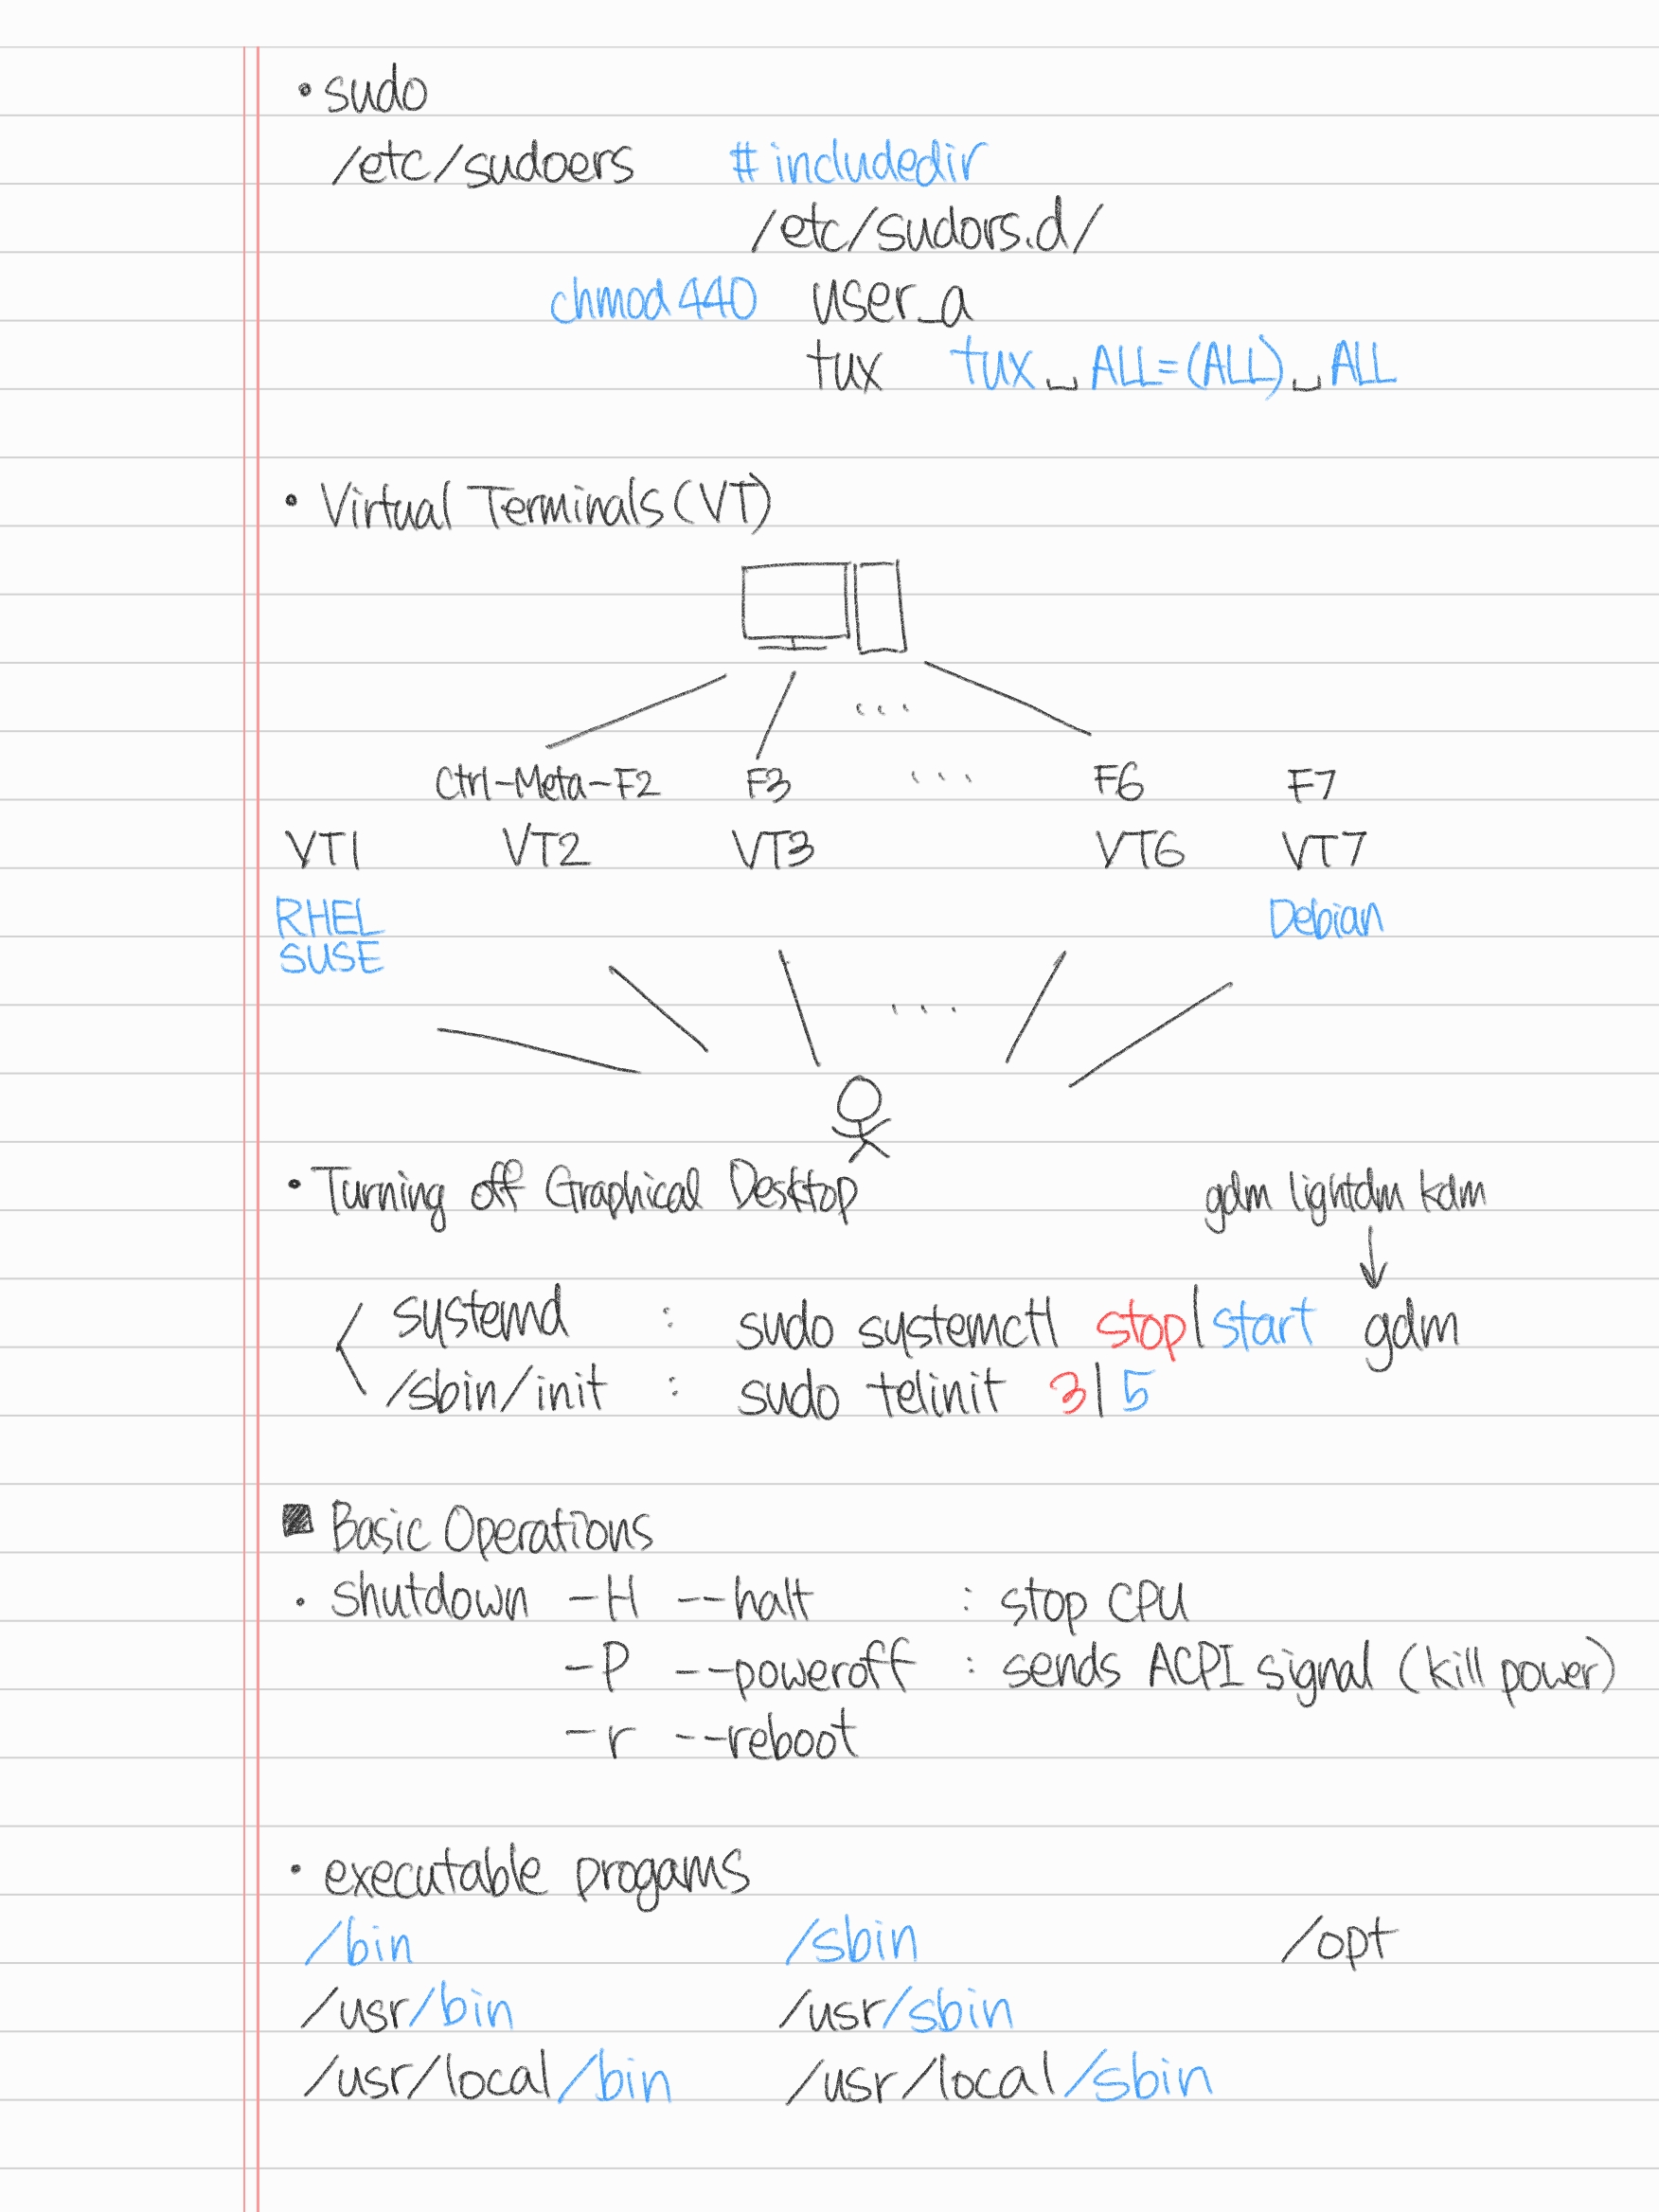 • sudo
/etc/sudoers #includedir
/etc/sudors.d/
chmod 440 user_a
tux tux␣ALL=(ALL)␣ALL
• Virtual Terminals (VT)
...
Ctrl-Meta-F2 F3 ... F6 F7
VT1 VT2 VT3 VT6 VT7
RHEL Debian
SUSE
...
• Turning off Graphical Desktop gdm lightdm kdm
systemd : sudo systemctl stop|start gdm
/sbin/init : sudo telinit 3|5
■ Basic Operations
• shutdown -H --halt : stop CPU
-P --poweroff : sends ACPI signal (kill power)
-r --reboot
• executable progams
/bin /sbin /opt
/usr/bin /usr/sbin
/usr/local/bin /usr/local/sbin